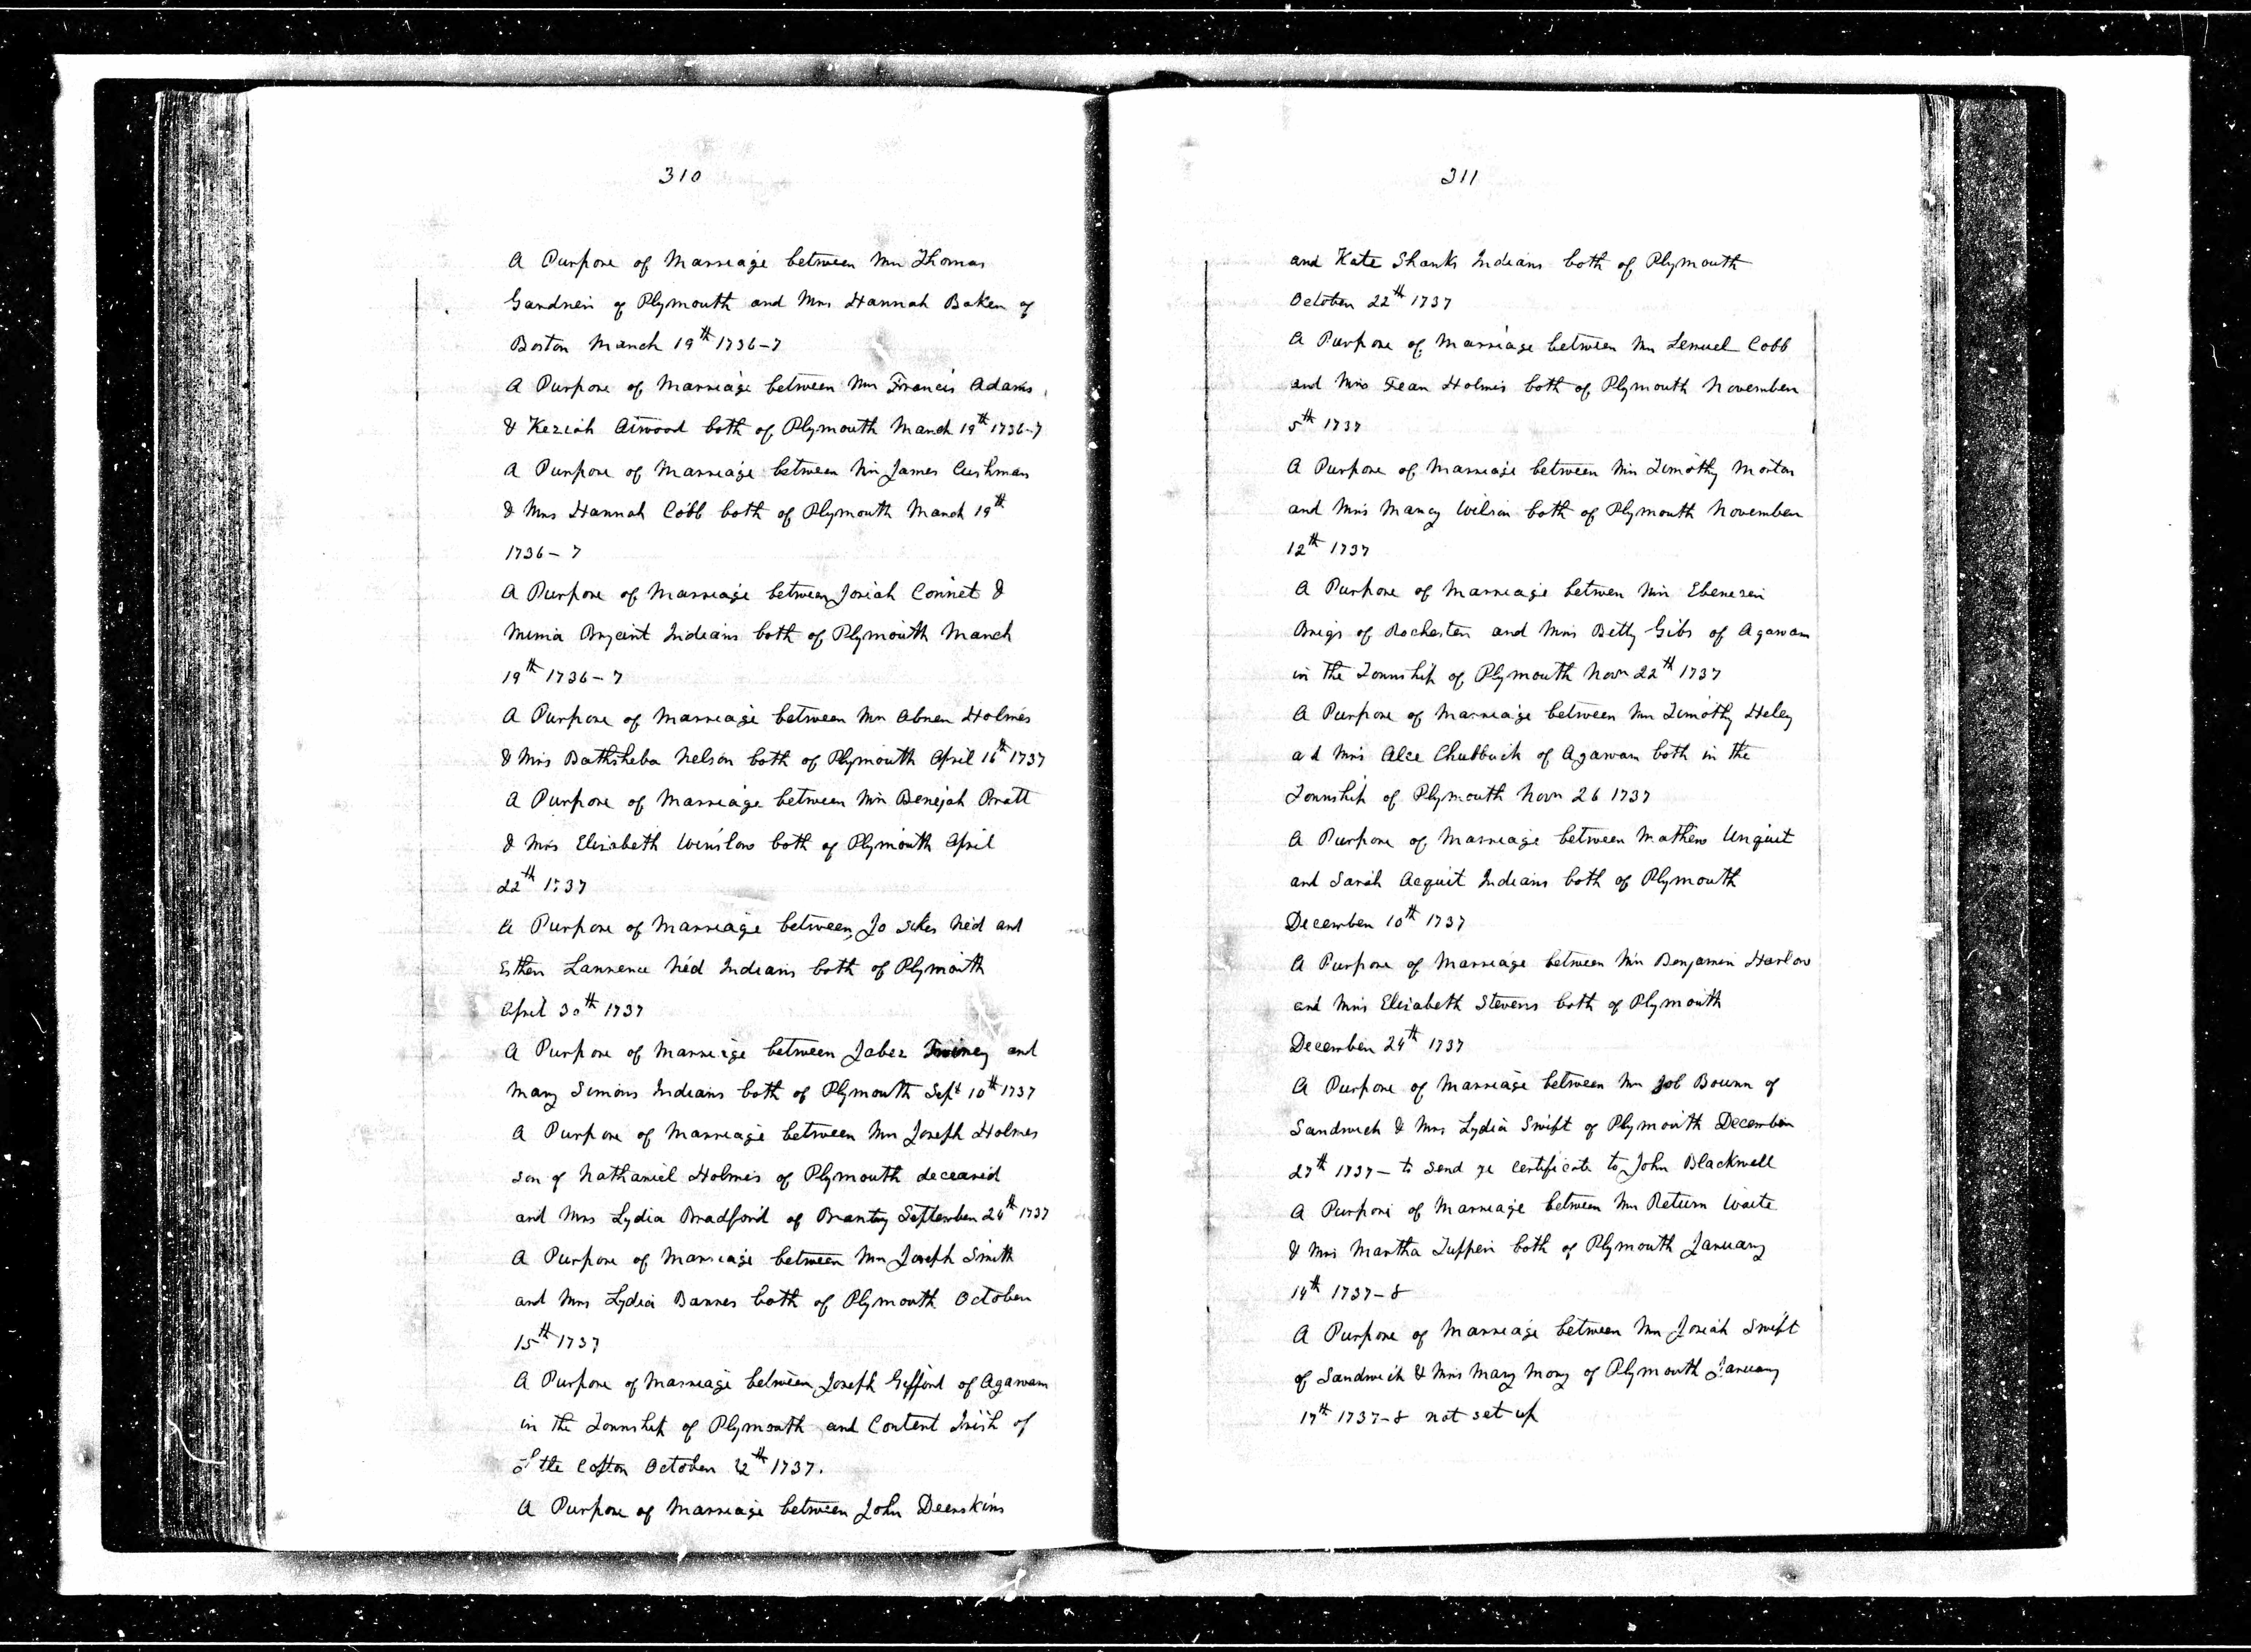 310
A Purpose of Marriage between Mr Thomas
Gardner of Plymouth and Mrs Hannah Baker of
Boston March 19th 1736-7
A Purpose of Marriage between Mr Francis Adams
& Keziah Atwood both of Plymouth March 19th 1736-7
A Purpose of Marriage between Mr James Cushman
& Mrs Hannah Cobb both of Plymouth March 19th
1736-7
A Purpose of Marriage between Josiah Connet &
Mima Bryant Indians both of Plymouth March
19th 1736-7
A Purpose of Marriage between Mr Abner Holmes
& Mrs Bathsheba Nelson both of Plymouth April 16th 1737
A Purpose of Marriage between Mr Benejah Pratt
& Mrs Elizabeth Winslow both of Plymouth April
22th 1737
A Purpose of Marriage between Jo Sekes Ned and
Esther Lawrence Ned Indians both of Plymouth
April 30th 1737
A Purpose of Marriage between Jabez and
Mary Simons Indians both of Plymouth Sept 10th 1737
A Purpose of Marriage between Mr Joseph Holmes
son of Nathaniel Holmes of Plymouth deceased
and Mrs Lydia Bradford of Brantry September 24th 1737
A Purpose of Marriage between Mr Joseph Smith
and Mrs Lydia Barnes both of Plymouth October
15th 1737
A Purpose of Marriage between Joseph Gifford of Agawam
in the Township of Plymouth and Content Irish of
Little Compton October 22th 1737.
A Purpose of Marriage between John Deerskins
311
and Kate Shanks Indians both of Plymouth
October 22th 1737
A Purpose of Marriage between Mr Lemuel Cobb
and Mrs Fear Holmes both of Plymouth November
5th 1737
A Purpose of Marriage between Mr Timothy Morton
and Mrs Marcy Wilson both of Plymouth November
12th 1737
A Purpose of Marriage betwen Mr Ebenezer
Brigs of Rochester and Mrs Betty Gibs of Agawam
in the Township of Plymouth Novr 22th 1737
A Purpose of Marriage between Mr Timothy Heley
ad Mrs Alce Chubbuck of Agawam both in the
Township of Plymouth Novr 26 1737
A Purpose of Marriage between Mathew Unquit
and Sarah Acquit Indians both of Plymouth
December 10th 1737
A Purpose of Marriage between Mr Benjamin Harlow
and Mrs Elizabeth Stevens both of Plymouth
December 24th 1737
A Purpose of Marriage between Mr Job Bourn of
Sandwich & Mrs Lydia Swift of Plymouth December
27th 1737 - to send ye certificate to John Blackwell
A Purpose of Marriage between Mr Return Waite
& Mrs Martha Tupper both of Plymouth January
14th 1737-8
A Purpose of Marriage between Mr Josiah Swift
of Sandwich & Mrs Mary Mory of Plymouth January
17th 1737-8 not set up